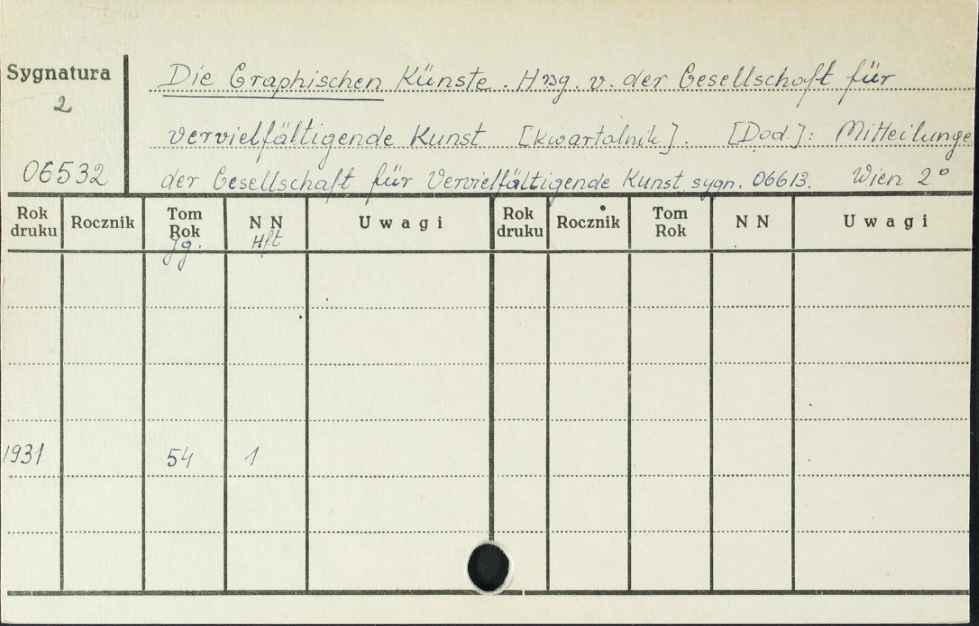 Sygnatura
2
06532
Die Graphischen Künste. Hrsg. v. der Gesellschaft für
vervielfältigende Kunst [kwartalnik]. [Dod]: Mitteilunge
der Gesellschaft für Vervielfältigende Kunst sygn. 06613. Wien 2°
Rok druku Rocznik Tom Rok N N Uwagi Rok druku Rocznik Tom Rok N N Uwagi
Jg. Hft
1931 54 1